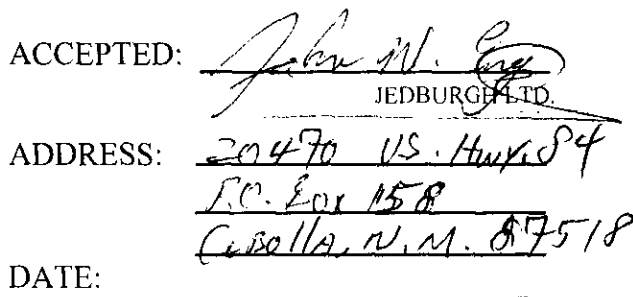 ACCEPTED: John W.
JEDBURGH LTD.
ADDRESS: 20470 US. Hwy. 84
P.O. Box 158
Cebolla, N.M. 87518
DATE: